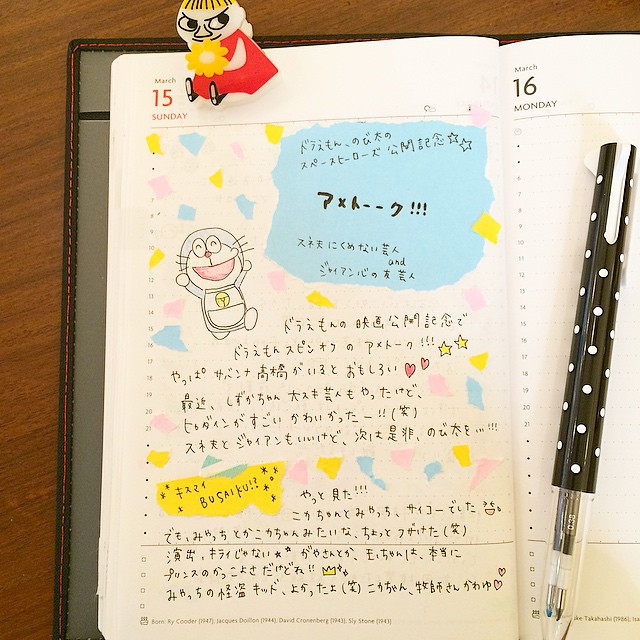 March
15
SUNDAY
ドラえもん、のび太の
スペースヒーローズ 公開記念☆☆
アメトーーク!!!
スネ夫にくめない芸人
and
ジャイアン心の友芸人
ドラえもんの映画公開記念で
ドラえもんスピンオフのアメトーク!!!
やっぱ サバンナ高橋がいるとおもしろい♡♡
最近、しずかちゃん大スキ芸人もやったけど、
ヒュダインがすごいかわいかったー!!(笑)
スネ夫とジャイアンもいいけど、次は是非、のび太を…!!!
キスマイ
BUSAIKU!?
やっと見た!!!
こかちゃんとみやっち、サイコーでした
でも、みやっちとかこかちゃんみたいな、ちょっとフザけた(笑)
演出、キライじゃない** がやさんとか、玉ちゃんは、本当に
プリンスのかっこよさだけどね!!
みやっちの怪盗キッド、よかったよ(笑)こかちゃん、牧師さんかわゆ♡
Born: Ry Cooder (1947), Jacques Doillon (1944), David Cronenberg (1943), Sly Stone (1943)
March
16
MONDAY
Takahashi (1986)